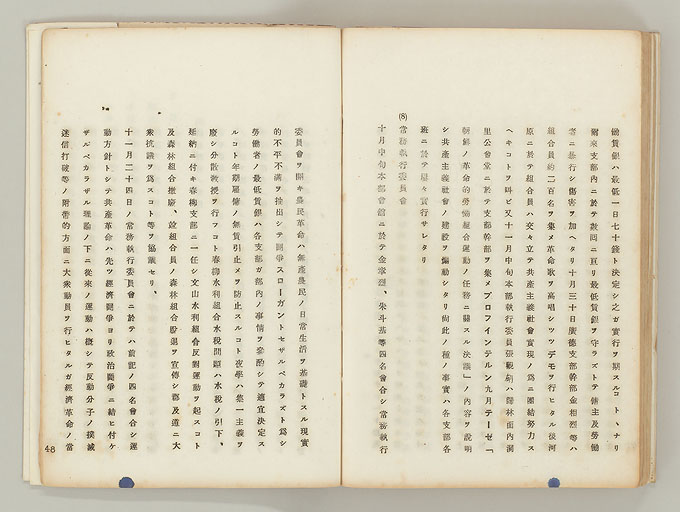 働賃銀ハ最低一日七十錢ト決定シ之ガ實行ヲ期スルコトトナリ
爾來支部內ニ於テ數回ニ亘リ最低賃銀ヲ守ラズトテ傭主及勞働
者ニ暴行シ傷害ヲ加ヘタリ十月三十日廣德支部幹部金相烈等ハ
組合員約二百名ヲ集メ革命歌ヲ高唱シツツデモヲ行ヒタル後河
原ニ於テ組合員ハ交々立テ共產主義社會實現ノ爲ニ團結努力ス
ヘキコトヲ叫ビ又十一月中旬本部執行委員張觀 ハ 林面內洞
里公會堂ニ於テ支部幹部ヲ集メプロフインテルン九月テーゼ「
朝鮮ノ革命的勞働組合運動ノ任務ニ關スル決議」ノ內容ヲ說明
シ共產主義社會ノ建設ヲ煽動シタリ尙此ノ種ノ事實ハ各支部各
班ニ於テ屢々實行サレタリ
(8)
常務執行委員會
十月中旬本部會館ニ於テ金 烈、朱斗基等四名會合シ常務執行
委員會ヲ開キ農民革命ハ無產農民ノ日常生活ヲ基礎トスル現實
的不平不滿ヲ抽出シテ鬪爭スローガントセザルベカラズト爲シ
勞働者ノ最低賃銀ハ各支部ガ部內ノ事情ヲ參酌シテ適宜決定ス
ルコト年期雇傭ノ無賃引止メヲ防止スルコト夜學ハ集一主義ヲ
廢シ分散敎授ヲ行フコト春柳水利組合水稅問題ハ水稅ノ引下、
延納ニ付キ春柳支部ニ一任シ文山水利組合反對運動ヲ起スコト
及森林組合撤廢、竝組合員ノ森林組合脫退ヲ宣傳シ郡及道ニ大
衆抗議ヲ爲スコト等ヲ協議セリ、
十一月二十四日ノ常務執行委員會ニ於テハ前記ノ四名會合シ運
動方針トシテ共產革命ハ先ツ經濟鬪爭ヨリ政治鬪爭ニ結ヒ付ケ
ザルベカラザル理論ノ下ニ從來ノ運動ハ槪シテ反動分子ノ撲滅
迷信打破等ノ附帶的方面ニ大衆動員ヲ行ヒタルガ經濟革命ノ當
48